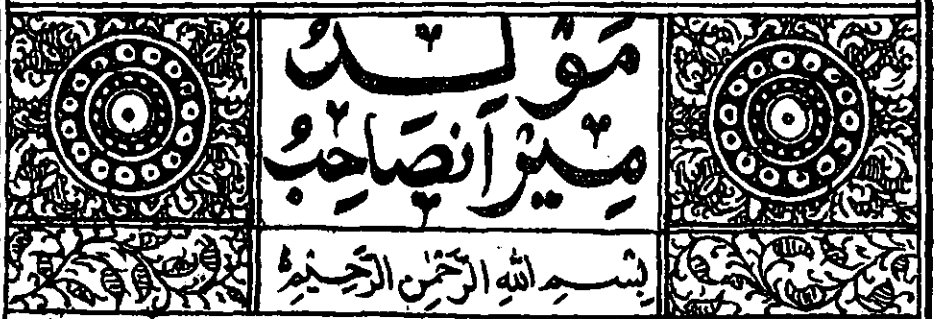 مَوْلِدُ
مِيْرَانْصَاحِبْ
بِسْمِ اللهِ الرَّحْمٰنِ الرَّحِيْمِ